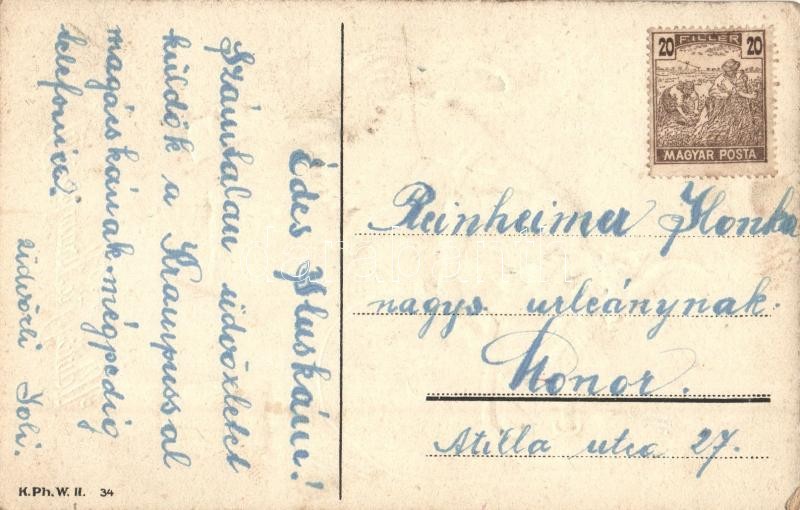 Édes Iluskám!
Számtalan üdvözletet
küldök a Krampussal
magácskának mégpedig
telefonice.
üdvözli Joli.
20 FILLER 20
MAGYAR POSTA
Reinheimer Ilonka
nagys. urleánynak.
Monor.
Atilla utca 27.
K.Ph.W. II. 34